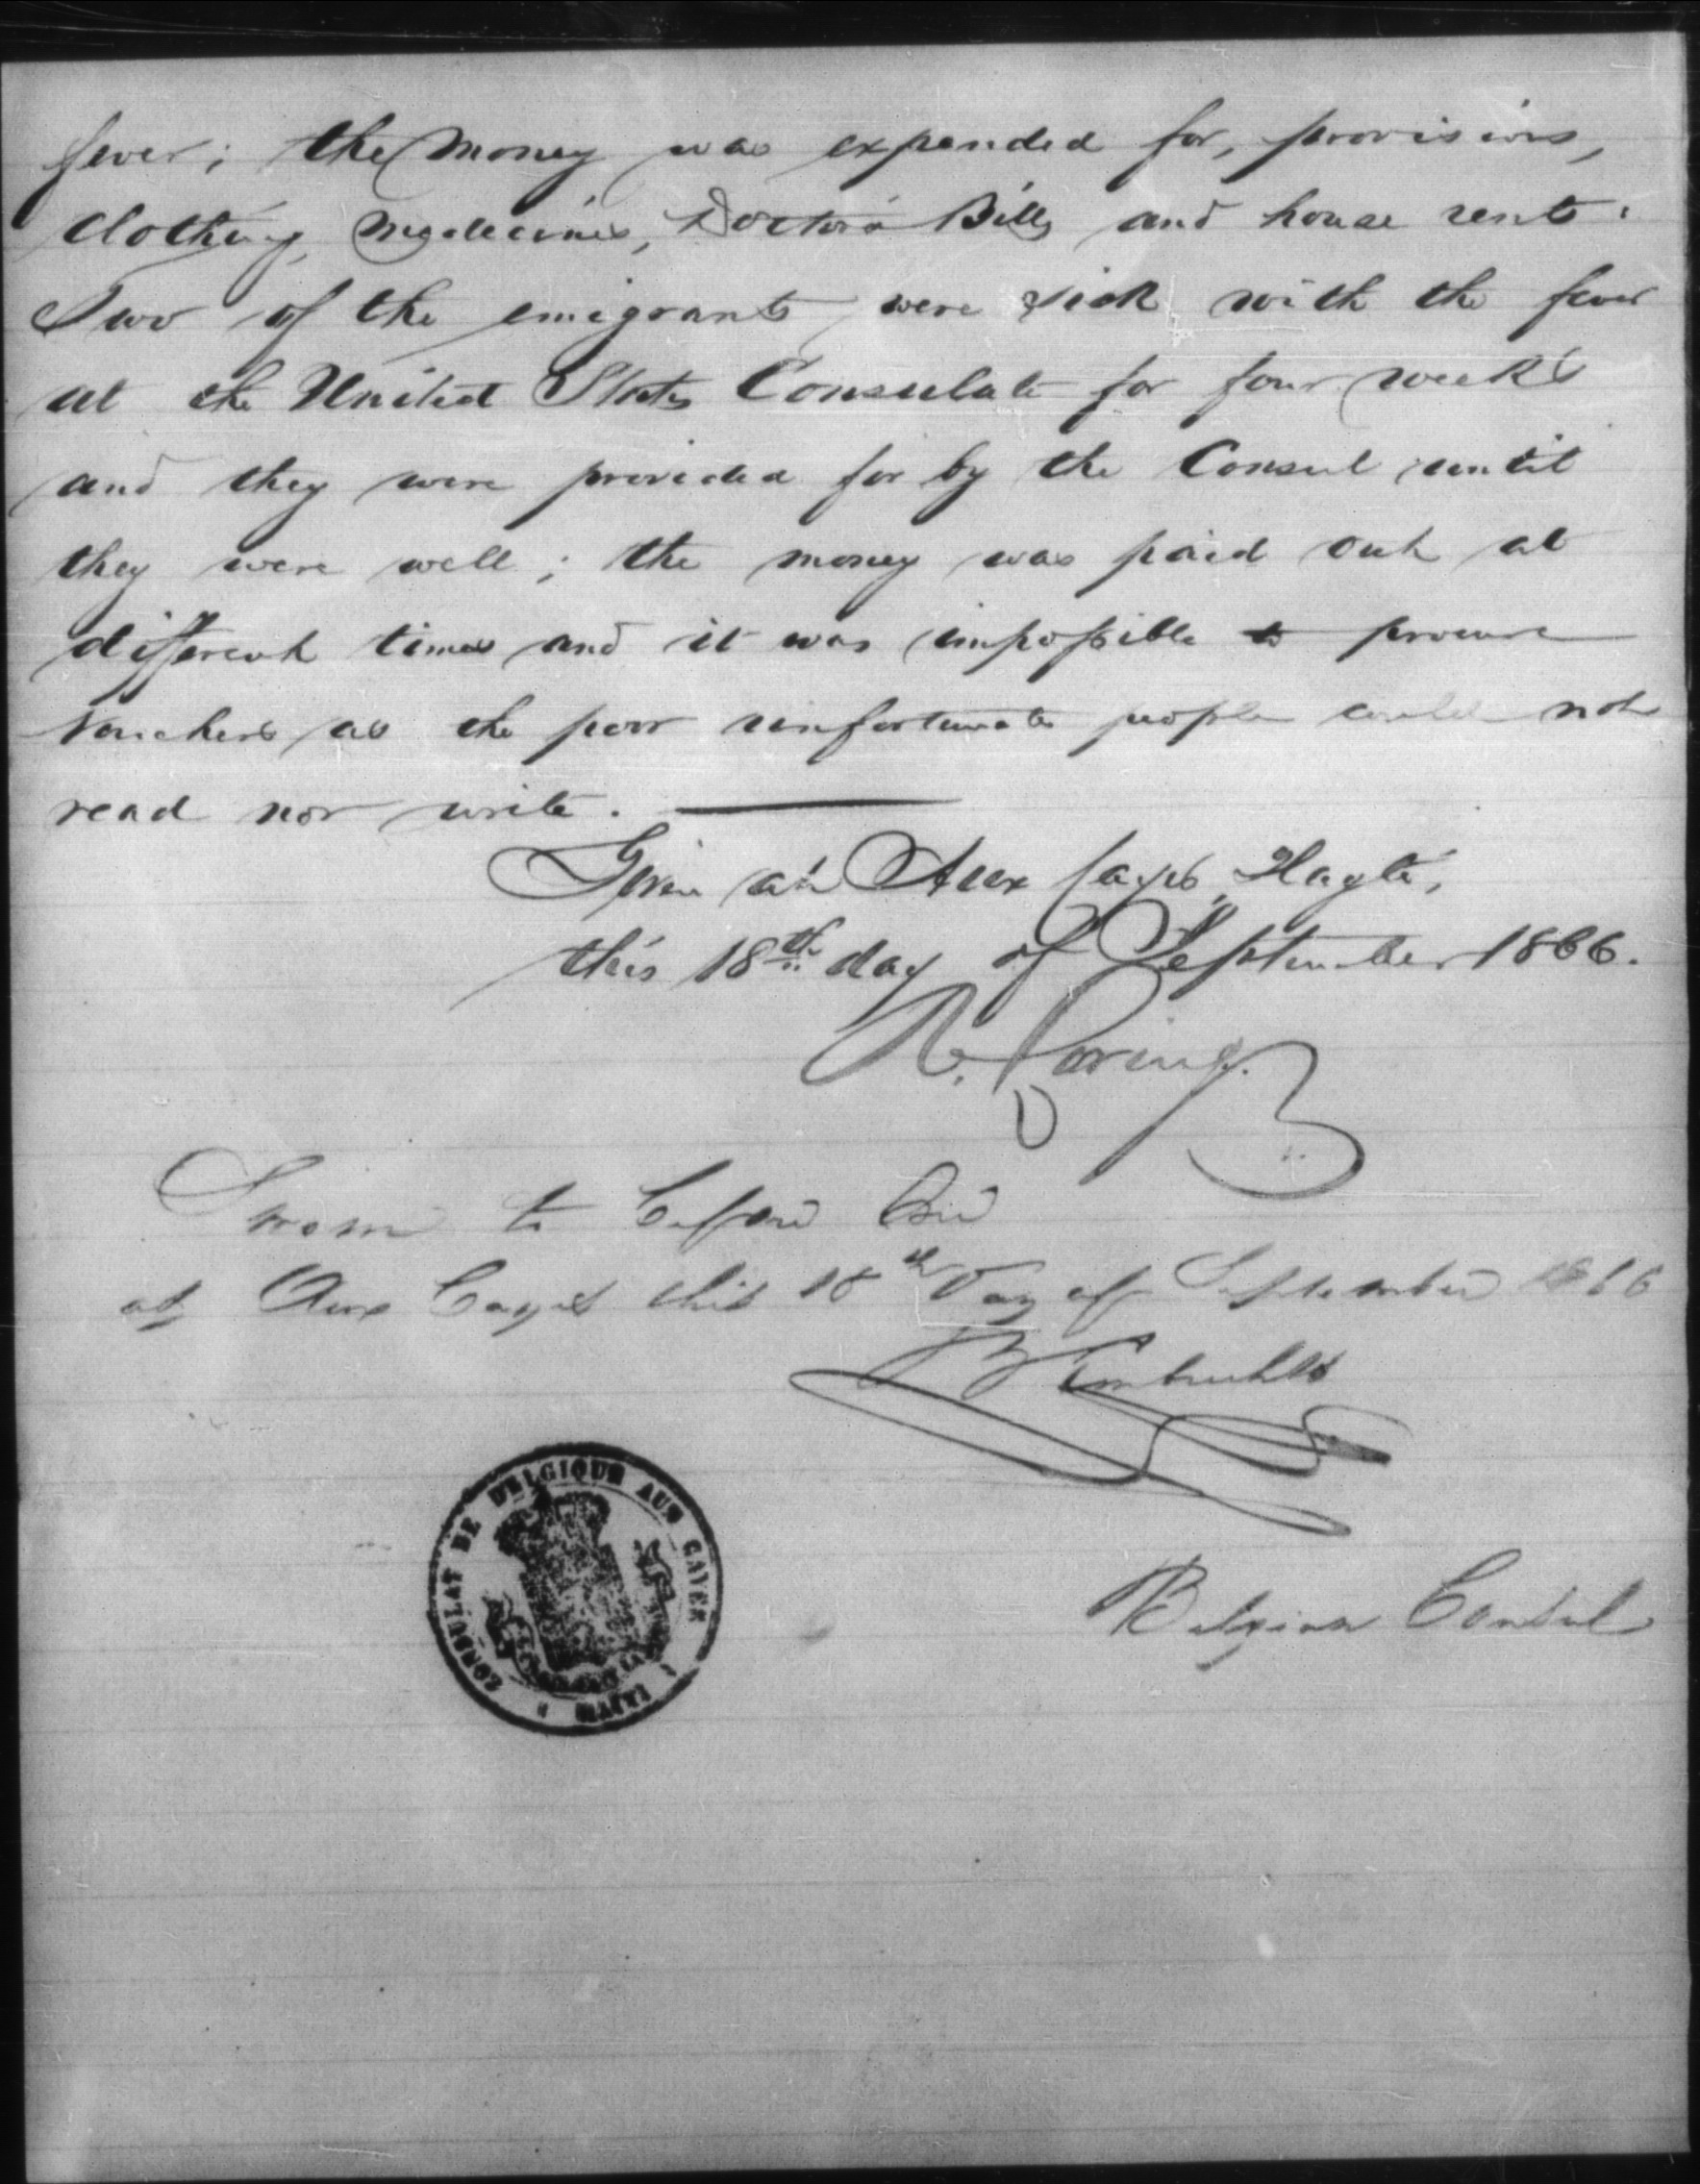 fever; the money was expended for, provisions,
clothing, Medecines, Doctor's Bills and house rent.
Two of the emigrants were sick with the fever
at the United States Consulate for four weeks
and they were provided for by the Consul until
they were well; the money was paid out at
different times and it was impossible to procure
vouchers as the poor unfortunate people could not
read nor write.
Given at Aux Cayes, Hayti,
this 18th day of September 1866.
Sworn to before me
at Aux Cayes this 18th Day of September 1866
Belgian Consul
CONSULAT DE BELGIQUE AUX CAYES
HAITI